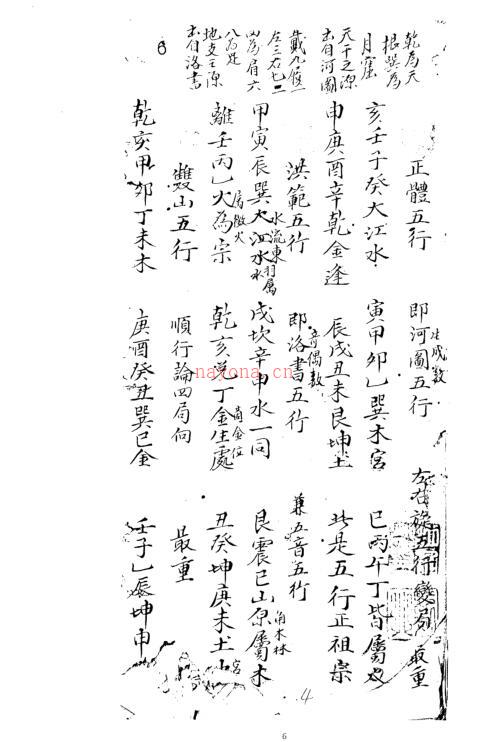 乾為天
根巽為
月窟
天干之源
出自河圖
戴九履一
左三右七二
四為肩六
八為足
地支之源
出自洛書
6
正體五行　即河圖五行　左右旋五行變局　最重
生成數
亥壬子癸大江水　寅甲卯乙巽木宮　巳丙午丁皆屬火
申庚酉辛乾金逢　辰戌丑未艮坤土　此是五行正祖宗
洪範五行　即洛書五行　兼五音五行
奇偶數
甲寅辰巽大江水　戌坎辛申水一同　艮震巳山原屬木
水流東羽屬水
角木林
離壬丙乙火為宗　乾亥兌丁金生處　丑癸坤庚未土山
屬徵火
商金位
宮
雙山五行　順行論四局向　最重
乾亥甲卯丁未木　庚酉癸丑巽巳金　壬子乙辰坤申
4
nayona.cn
6